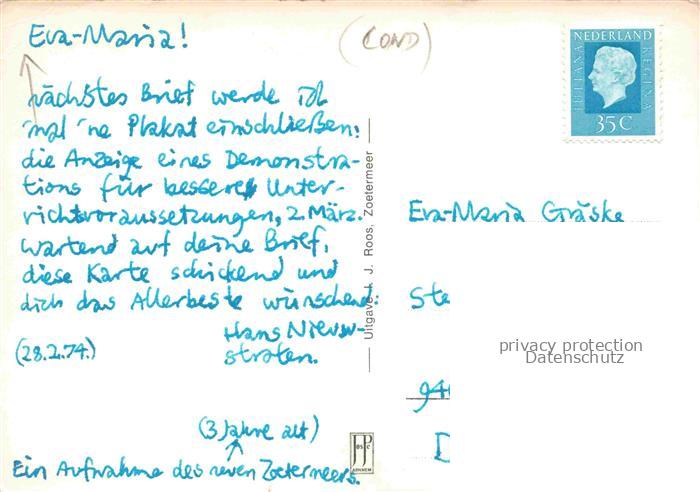 Eva-Maria!
(LOND)
NEDERLAND
JULIANA REGINA
35 C
nächstes Brief werde ich
mal 'ne Plakat einschließen:
die Anzeige eines Demonstra-
tions für besseres Unter-
richtsvoraussetzungen, 2. März.
Wartend auf deine Brief,
diese Karte schickend und
dich das Allerbeste wünschend:
Hans Nieuw-
straten.
(28.2.74.)
(3 Jahre alt)
Ein Aufnahme des neuen Zoetermeers.
Uitgave J. J. Roos, Zoetermeer
ARNHEM
Eva-Maria Gräske
Ste
94
D
privacy protection
Datenschutz